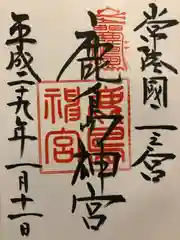 常陸國一之宮
鹿島神宮
平成二十九年一月十一日